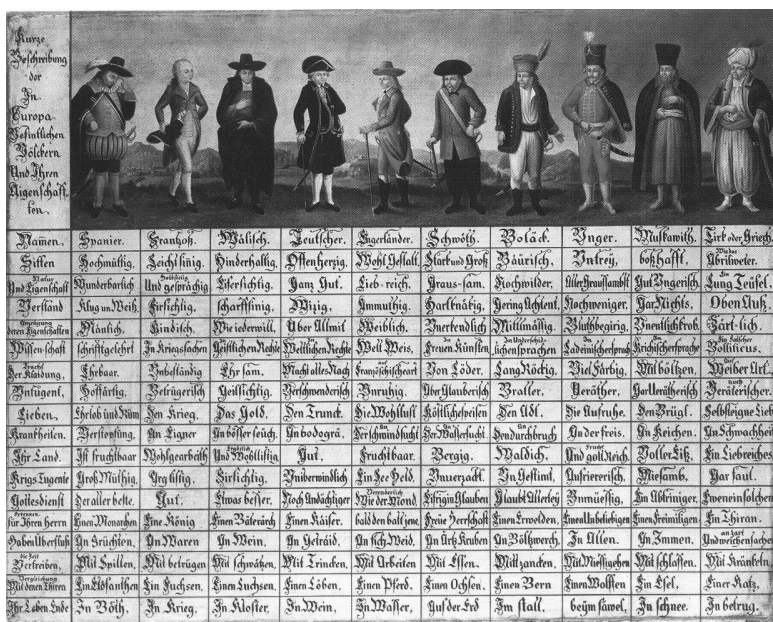 Kurze
Beschreibung
der
In
Europa
Befintlichen
Völckern
Und Ihren
Aigenschaff
ten.
Namen. Spanier. Frantzoß. Wälisch. Teutscher. Engerländer. Schwöth. Boläck. Unger. Muskawith. Tirk oder Griech.
Sitten Hochmüttig, Leichtsinig, Hinderhaltig, Offenherzig, Wohl Gestalt, Starck und Groß Bäurisch, Untrey, boßhafft, Abrilweter.
Natur Und Eigenschaft Wunderbarlich Holdseelig Und gesprächig Eifersichtig, Ganz Gut, Lieb-reich, Graus-sam, Hochwilder, Aller Graussambst Gut Ungerisch, Ein Lung Teüfel.
Verstand Klug un Weiß, Firsichtig, scharffsinig, Wizig, Ammuthig, Hartknäbig, Gering Achtent, Nochweniger, Gar Nichts, Oben Auß,
Anzeigung deren Eigenschaften Mänlich, Kindisch, Wie iederwill, Über Allmit Weiblich, Unerkendlich Mittlmässig, Bluthbegirig, Unentlichkrob, Zärt-lich.
Wissenschaft schriftgelehrt In Kriegssachen Geistlichen Rechte In Weltlichen Rechte Welt Weis, In Freuen Künsten In Underschid lichensprachen In Ladeinischersprach Krichischersprache Ein Falscher Bolliticus.
Tracht Der Klaidung, Ehrbaar. Unbeständig Ehrsam. Macht alles Nach auf Französischeart Von Löder. Lang Röckig. Viel Färbig, Mit böltzen. Auf Weiber Art.
Untugent, Hoffärtig, Betrügerisch Geilsichtig. Verschwenderisch Unruhig. Aber Glauberisch Braller. Veräther. Gar Verätherisch noch Veräterischer.
Lieben. Ehrlob und Rum Den Krieg. Das Gold. Den Trunck. Die Wohllust Köstlichespeisen Den Adl. Die Aufruhe. Den Brügl. Selbsteigne Lieb
Krankheiten. Verstopfung. An Eigner An bösser seüch. An bodogrä. An Der schwindsucht An Der Wassersucht. An Den durchbruch An der freis. An Keichen. An Schwachheit
Ihr Land. Ist fruchtbaar Wohlgearbeith Ergözlich Und Wohllistig Gut. Fruchtbaar. Bergig. Waldich. Frucht Und golt Reich. Voller Eiß. Ein Liebreiches
Krigs Tugente Groß Müthig, Arg listig, Firsichtig. Uniberwindlich Ein See Held. Unverzackt. Un Gestimt. Aufrierersch. Miesamb. Gar faul.
Gottesdienst Der aller beste. Gut. Etwas besser. Noch Andächtiger Veränderlich Wie der Mond. Eifrig in Glauben Glaubt Allerley Unmüessig. Ein Abtriniger. Eweneinsolchen
Erkennen für Ihren herrn Einen Monarchen Eine König Einen Baterärch Einen Kaiser. bald den balt jene. Freüe Herrschaft Einen Erwolden. Einen Unbeliebigen Einen Freimiligen. Ein Thiran.
Haben Überfluß An Früchten An Waren An Wein. An Getraid. An fich Weid. An Ärtz Kruben An Böltzwerch. In Allen. An Immen. an Zart Und weichen sachen
die Zeit Vertreiben, Mit Spillen. Mit betrügen Mit schwätzen. Mit Trincken. Mit Arbeiten Mit Essen. Mit zancken. Mit Miessigehen Mit schlaffen. Mit Kränkeln
Vergleichung Mit denen Thiren Ein Elofanthen Ein Fuchsen. Einen Luchsen. Einen Löben. Einen Pferd. Einen Ochsen. Einen Bern Einen Wolffen Ein Esel. Einer Katz.
Ihr Leben Ende In Böth. In Krieg. In Kloster. In Wein. In Wasser. Auf der Erd Im stall. beym säwel. In schnee. In betrug.